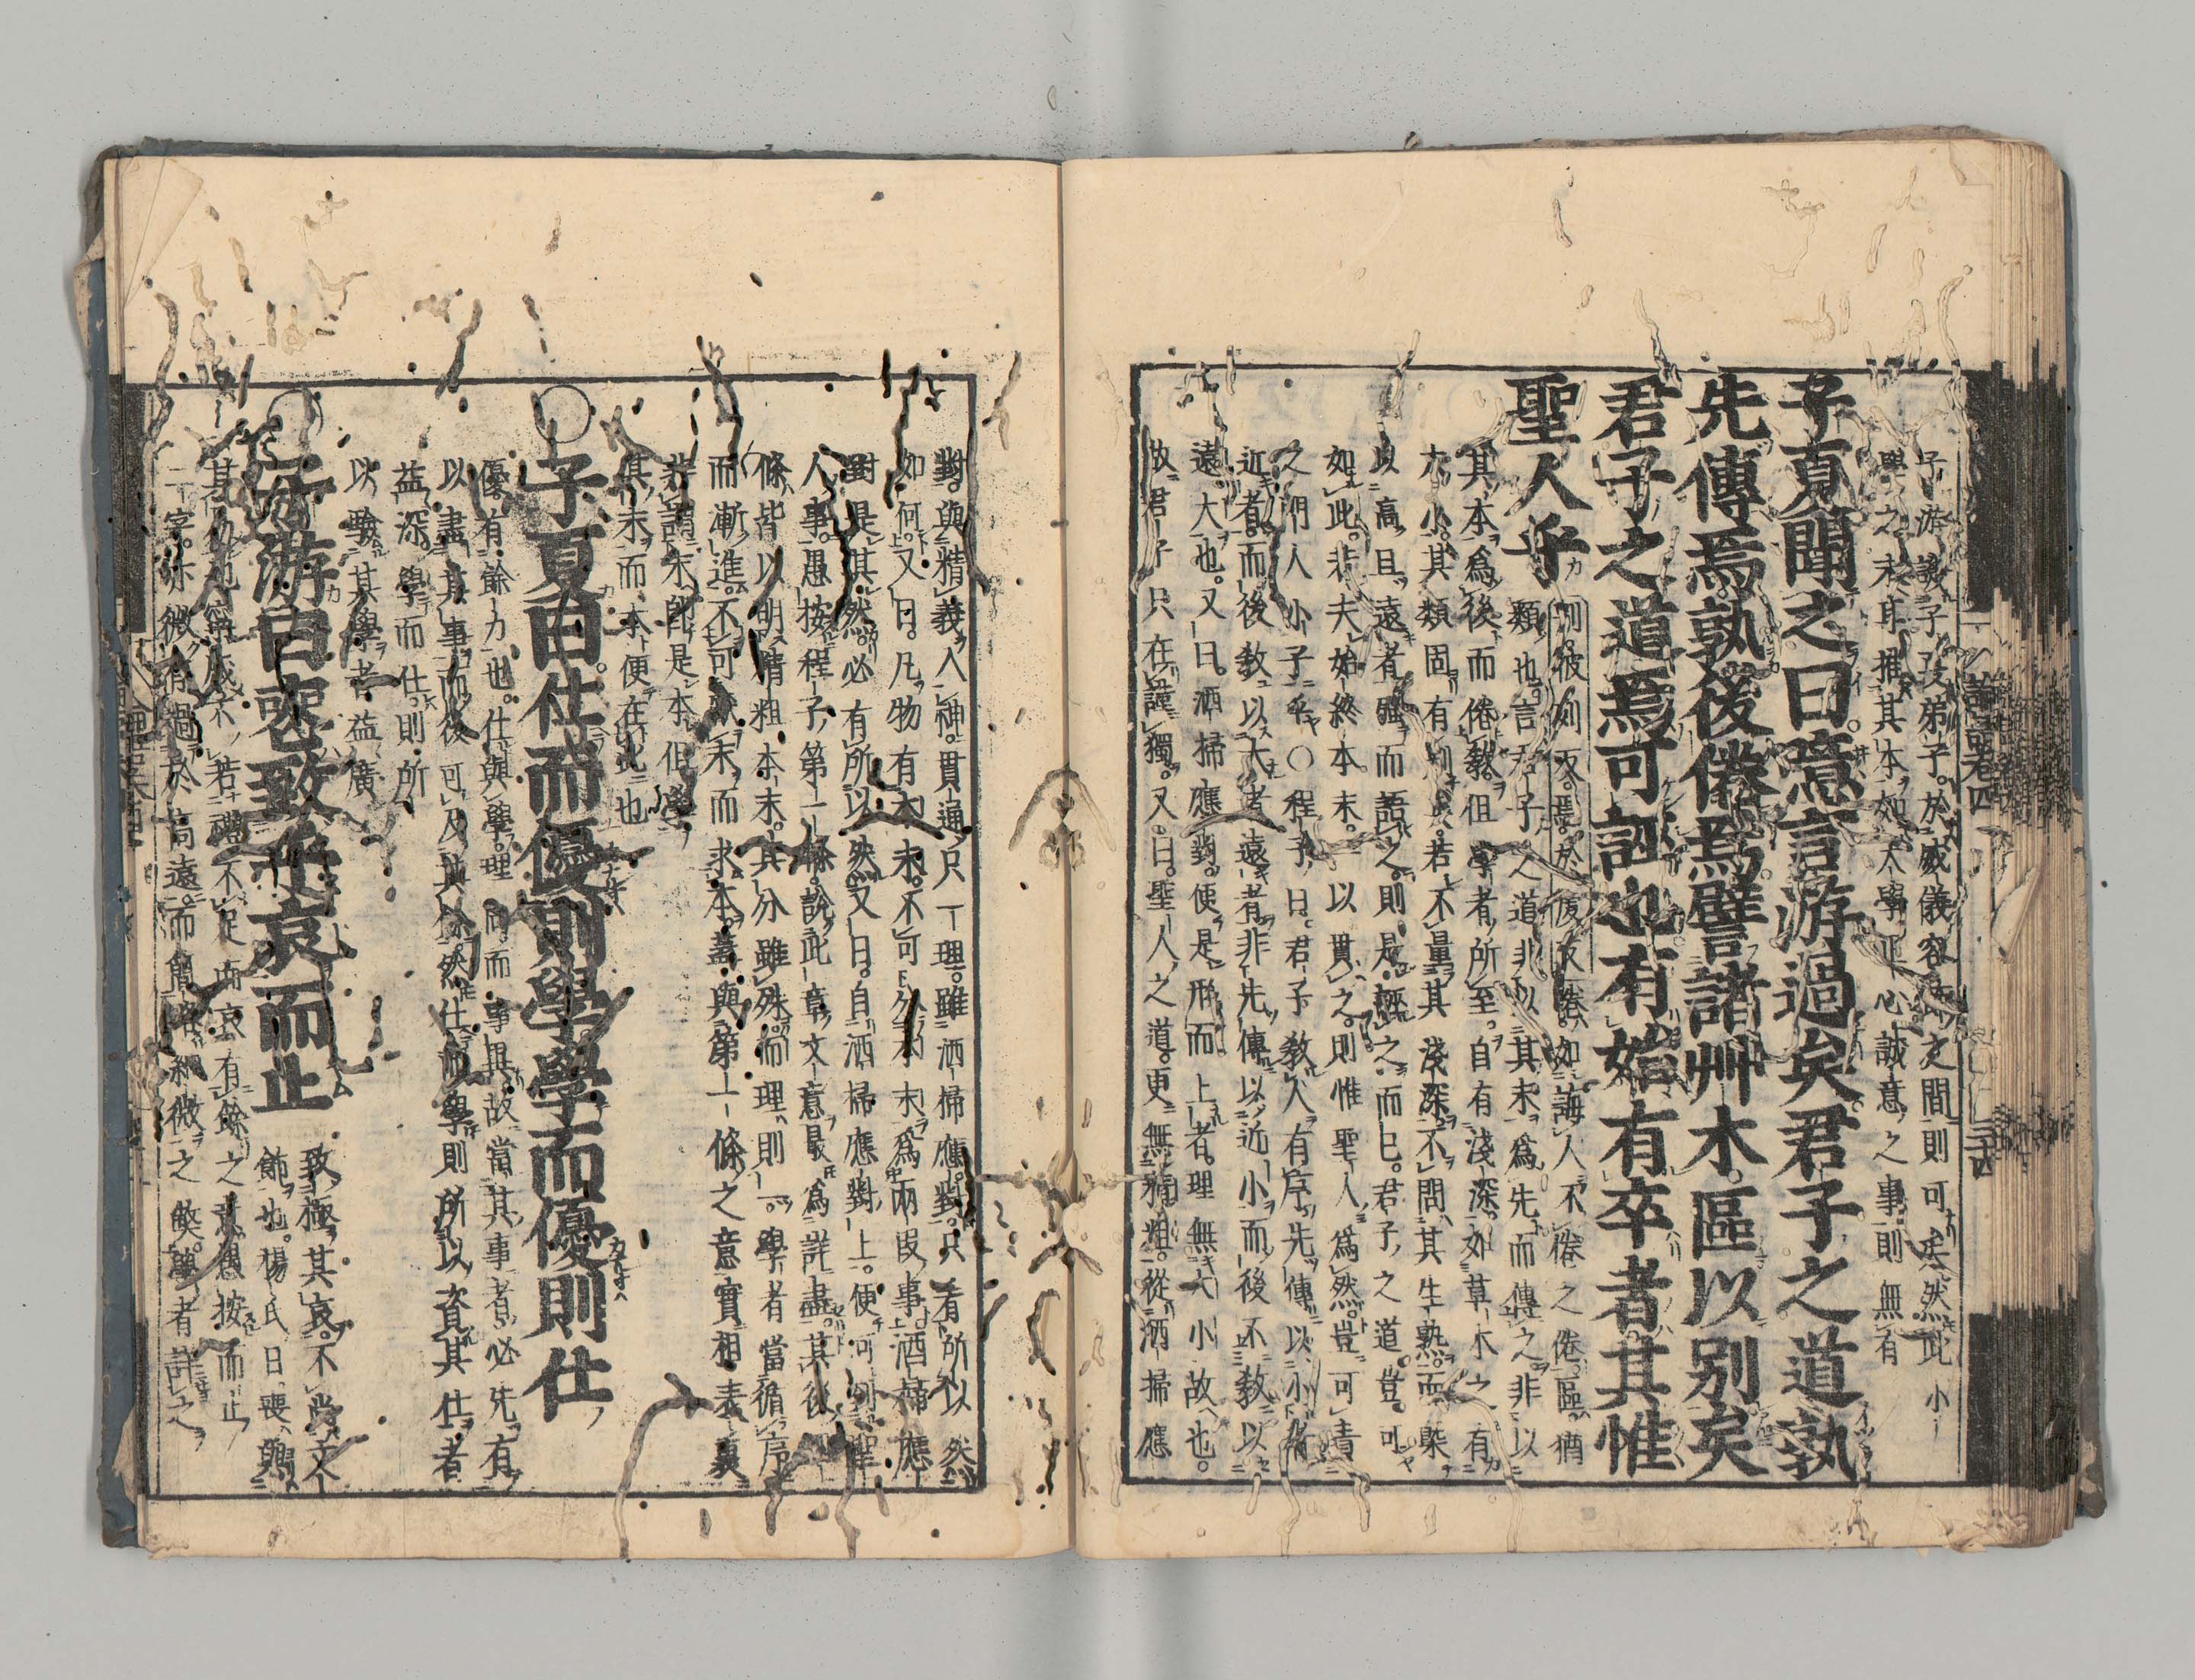 子游譏子夏弟子。於威儀容節之間則可矣。然此小
學之末耳。推其本。如大學正心誠意之事。則無有
子夏聞之曰。噫。言游過矣。君子之道。孰
先傳焉。孰後倦焉。譬諸艸木。區以別矣。
君子之道。焉可誣也。有始有卒者。其惟
聖人乎
別彼列反。焉。於虔反。倦。如誨人不倦之倦。區。猶
類也。言君子之道。非以其末爲先而傳之。非以
其本爲後而倦敎。但學者所至。自有淺深。如草木之有
大小。其類固有別矣。若不量其淺深。不問其生熟。而槩
以高且遠者强而語之。則是誣之而已。君子之道。豈可
如此。若夫始終本末。一以貫之。則惟聖人爲然。豈可責
之門人小子乎。〇程子曰。君子敎人有序。先傳以小者
近者。而後敎以大者遠者。非先傳以近小。而後不敎以
遠大也。又曰。洒掃應對。便是形而上者。理無大小故也。
故君子只在謹獨。又曰。聖人之道。更無精粗。從洒掃應
對。與精義入神。貫通只一理。雖洒掃應對。只看所以然
如何。又曰。凡物有本末。不可分本末爲兩段事。洒掃應
對是其然。必有所以然。又曰。自洒掃應對上。便可到聖
人事。愚按程子第一條。說此章文意。最爲詳盡。其後四
條。皆以明精粗本末。其分雖殊。而理則一。學者當循序
而漸進。不可厭末而求本。蓋與第一條之意。實相表裏
非謂末卽是本。但學
其末而本便在此也
〇子夏曰。仕而優則學。學而優則仕
優。有餘力也。仕與學。理同而事異。故當其事者。必先有
以盡其事。而後可及其餘。然仕而學。則所以資其仕者
益深。學而仕。則所
以驗其學者益廣
〇子游曰。喪致乎哀而止
致極其哀。不尚文
飾也。楊氏曰。喪。與
其易也寧戚。不若禮不足而哀有餘之意。愚按。而止
二字。亦微有過於高遠。而簡略細微之弊。學者詳之
論語卷四
三十四